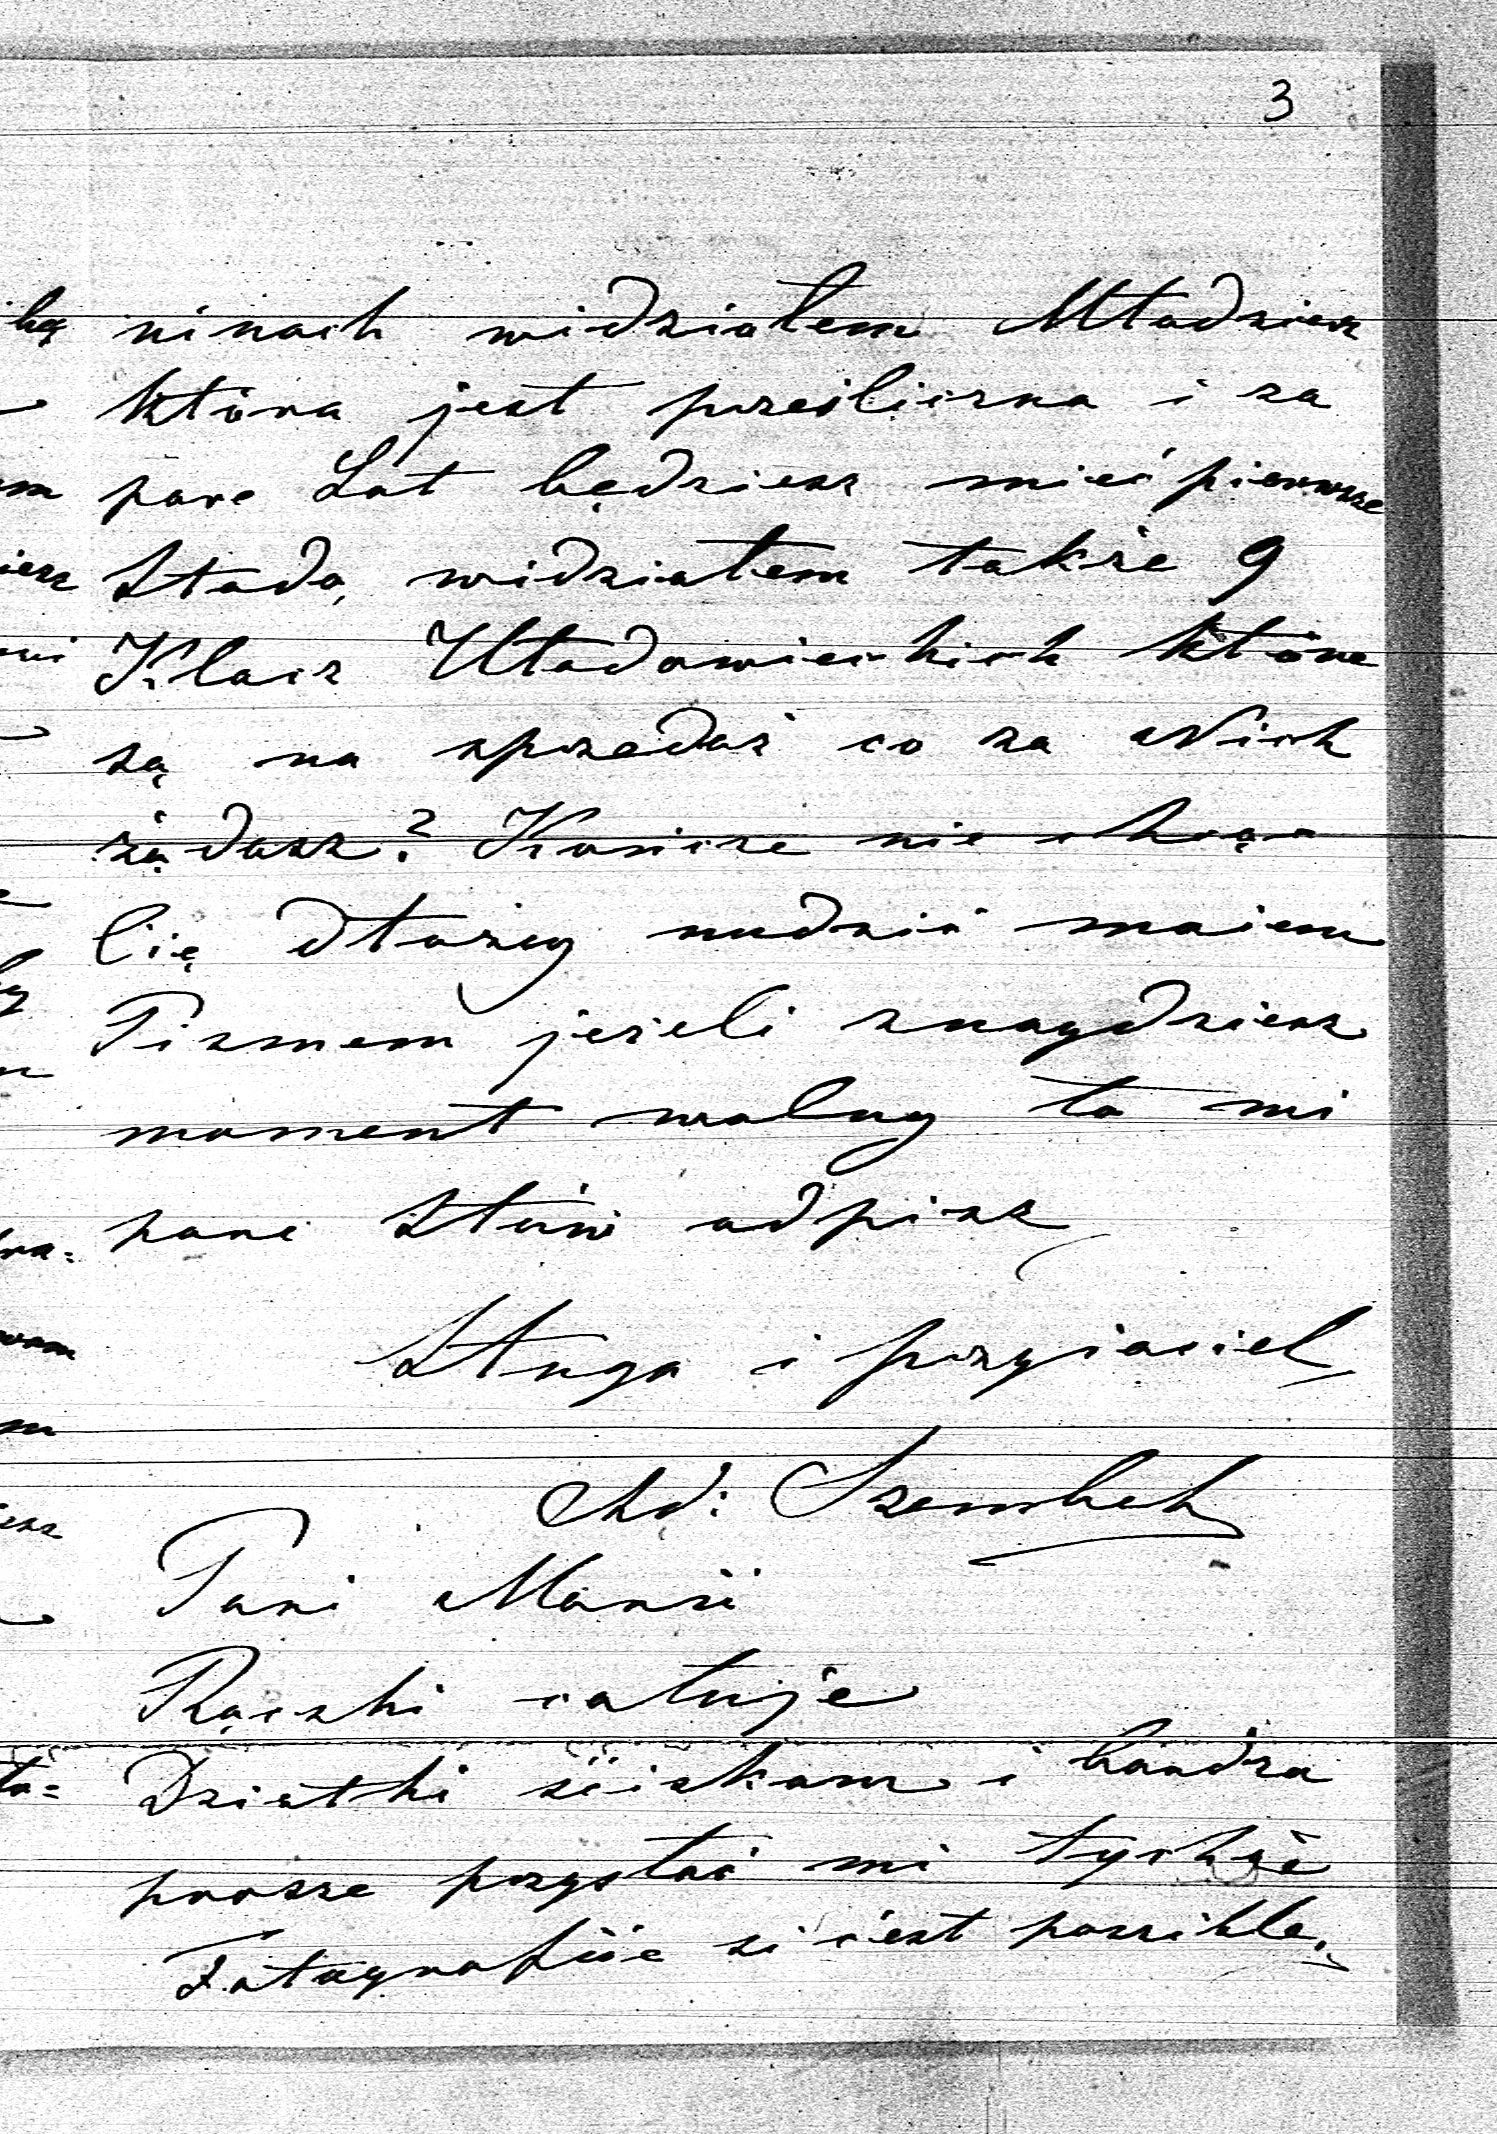 3
ninach widziałem Młodzież
która jest prześliczna i za
pare Lat będziesz mieć pierwsze
Stado, widziałem także 9
Klacz Uładowieckich które
są na sprzedaż co za Nich
żądasz? Koncze nie chcąc
Cię dłużey nudzić moiem
Pismem jeżeli znaydziesz
moment wolny to mi
pare słów odpisz
Sługa i przyiaciel
Ad: Szembek
Pani Marii
Rączki całuje
Dziatki ściskam i bardzo
prosze przysłać mi tychże
Fotografiie si c'est possible.